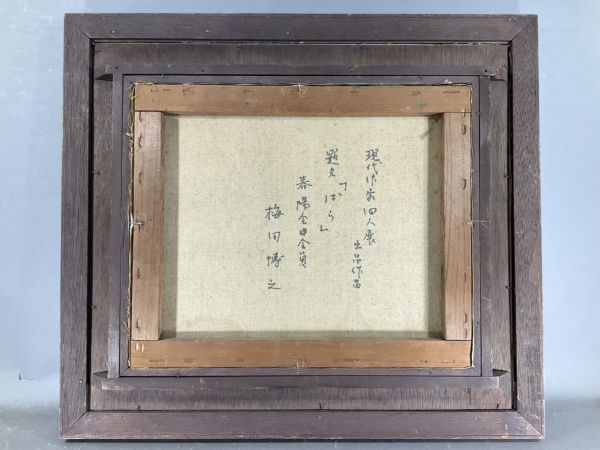 現代作家四人展
出品作品
題名「ばら」
春陽会会員
梅田博之